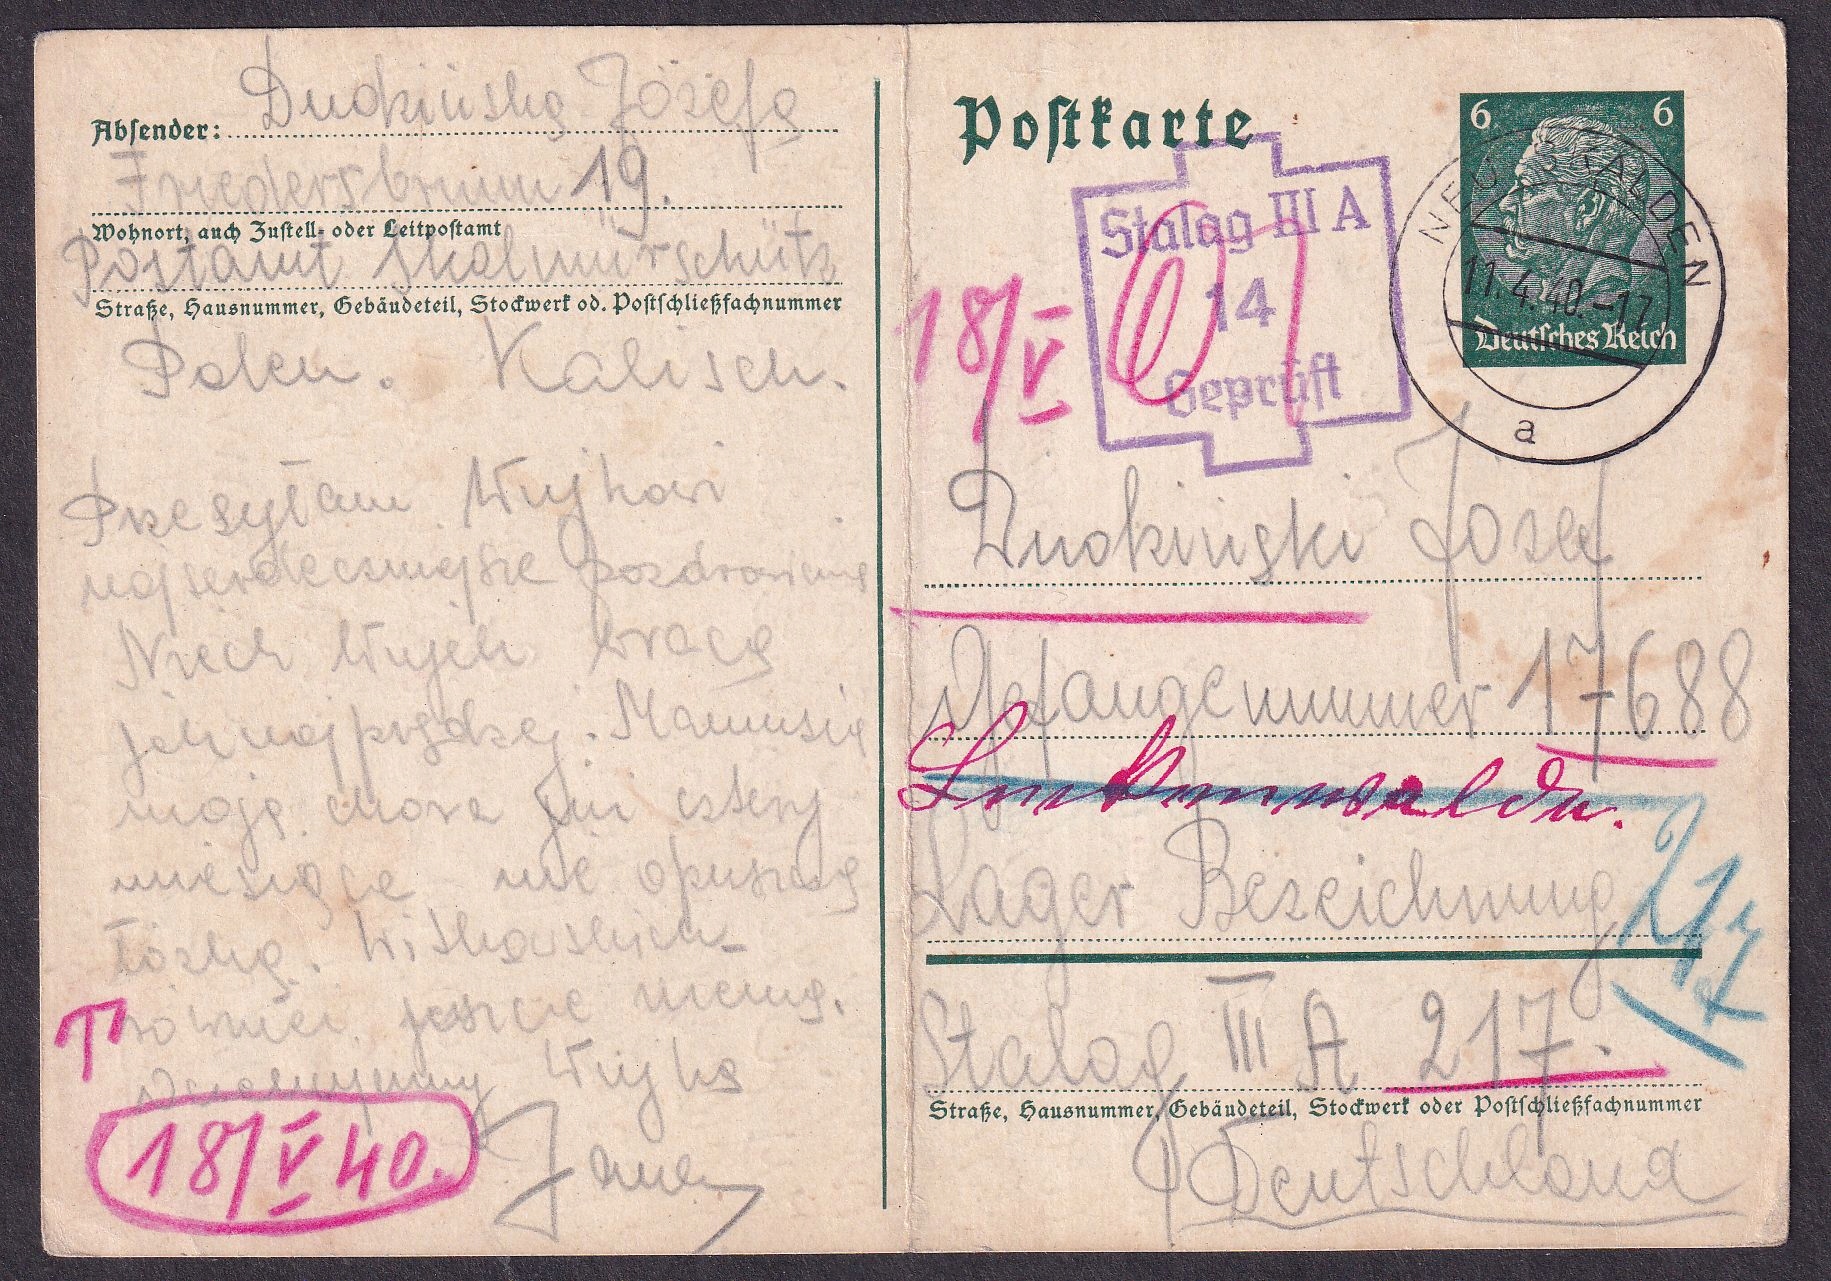 Absender: Dudzińska Józefa
Friedersbrunn 19.
Wohnort, auch Zustell- oder Leitpostamt
Postamt Skalmierschütz
Straße, Hausnummer, Gebäudeteil, Stockwerk od. Postschließfachnummer
Polen. Kalisch.
Przesyłam Wujkowi
najserdeczniejsze pozdrowienie
Niech Wujek wraca
jak najprędzej. Mamusia
moja chora już cztery
miesiące nie opuszcza
łóżka.
również jeszcze niema.
Wujka
Janek
18/V 40.
Postkarte
6 6
Deutsches Reich
11.4.40.-17
a
Stalag III A
14
Geprüft
18/V
Józef
Gefangenummer 17688
Luckenwalde.
Lager Bezeichnung
217
Stalag III A 217.
Straße, Hausnummer, Gebäudeteil, Stockwerk oder Postschließfachnummer
Deutschland